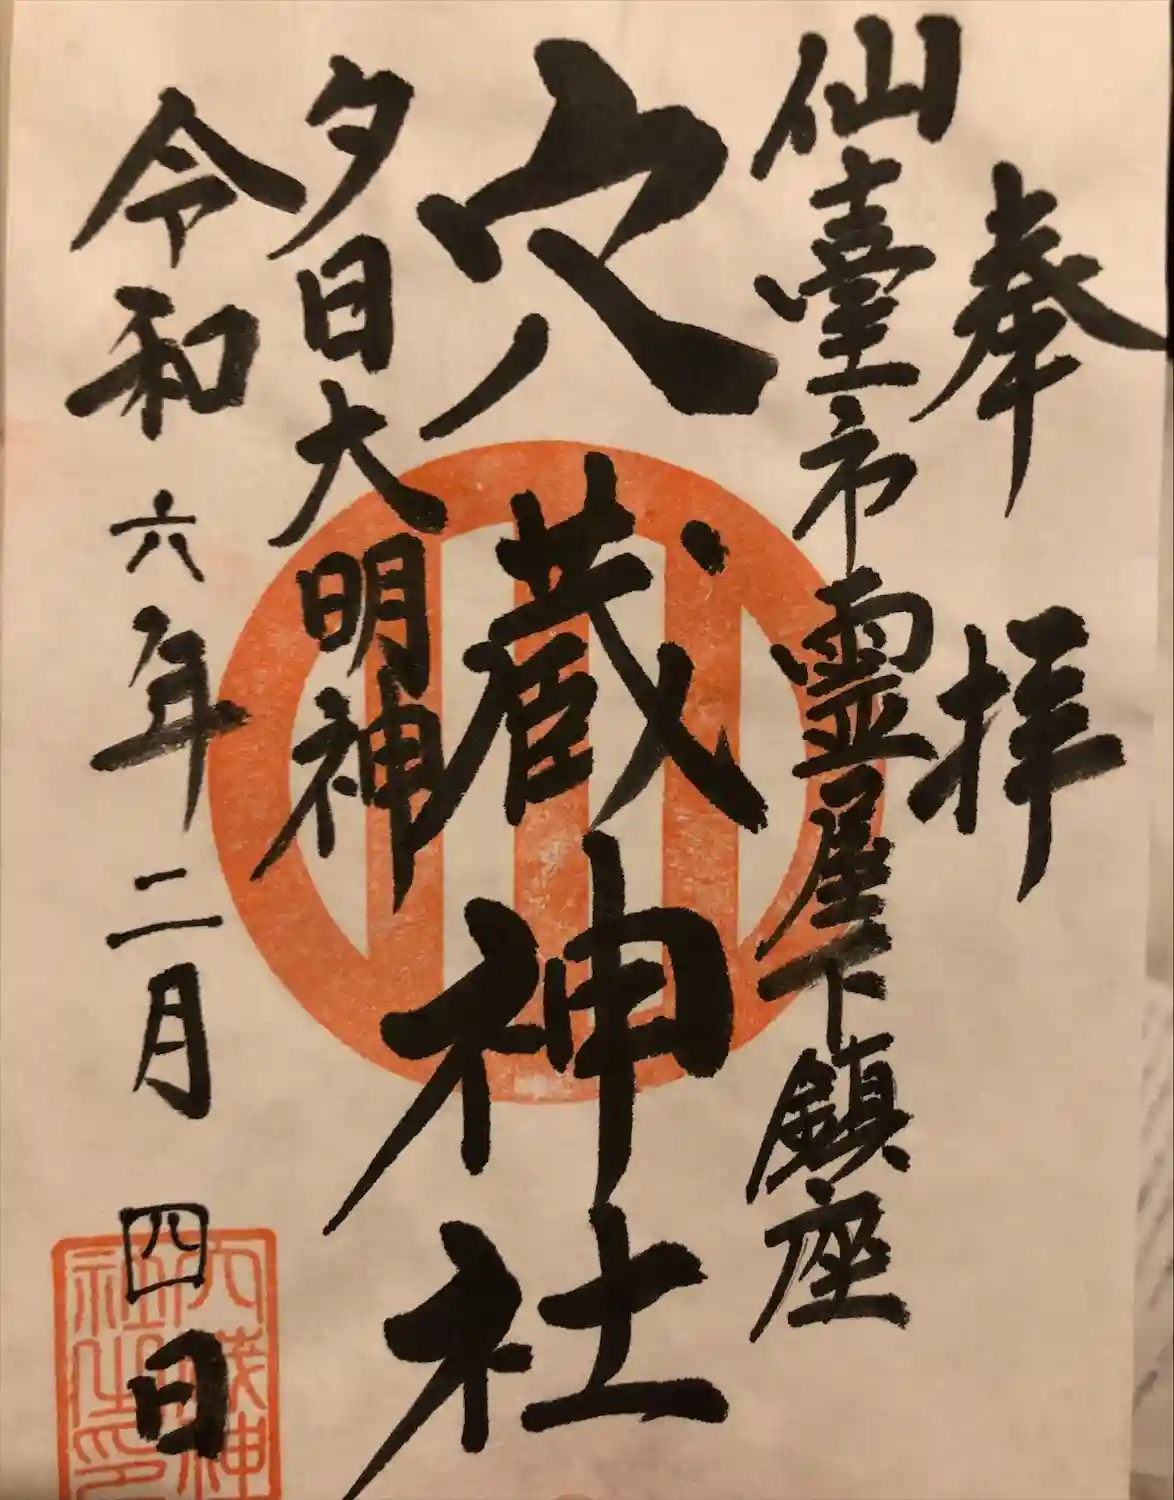 奉拝
仙臺市霊屋下鎮座
穴蔵神社
夕日大明神
令和六年二月四日
穴蔵神
社